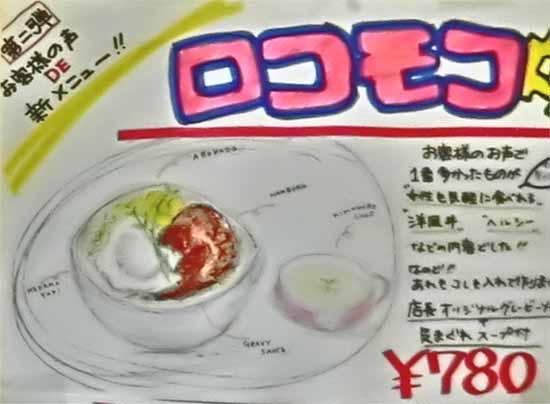 第二弾
お客様の声
DE
新メニュー!!
ロコモコ
ABOKADO
HAMBURG
KIMAGURE
SOUP
MEDAMA
YAKI
GRAVY
SAUCE
お客様のお声で
1番多かったものが
"女性も気軽に食べれる"
"洋風丼" "ヘルシー"
などの内容でした!!
なので!!
あれもコレも入れて作りま
店長オリジナルグレービーソ
気まぐれスープ付
¥780